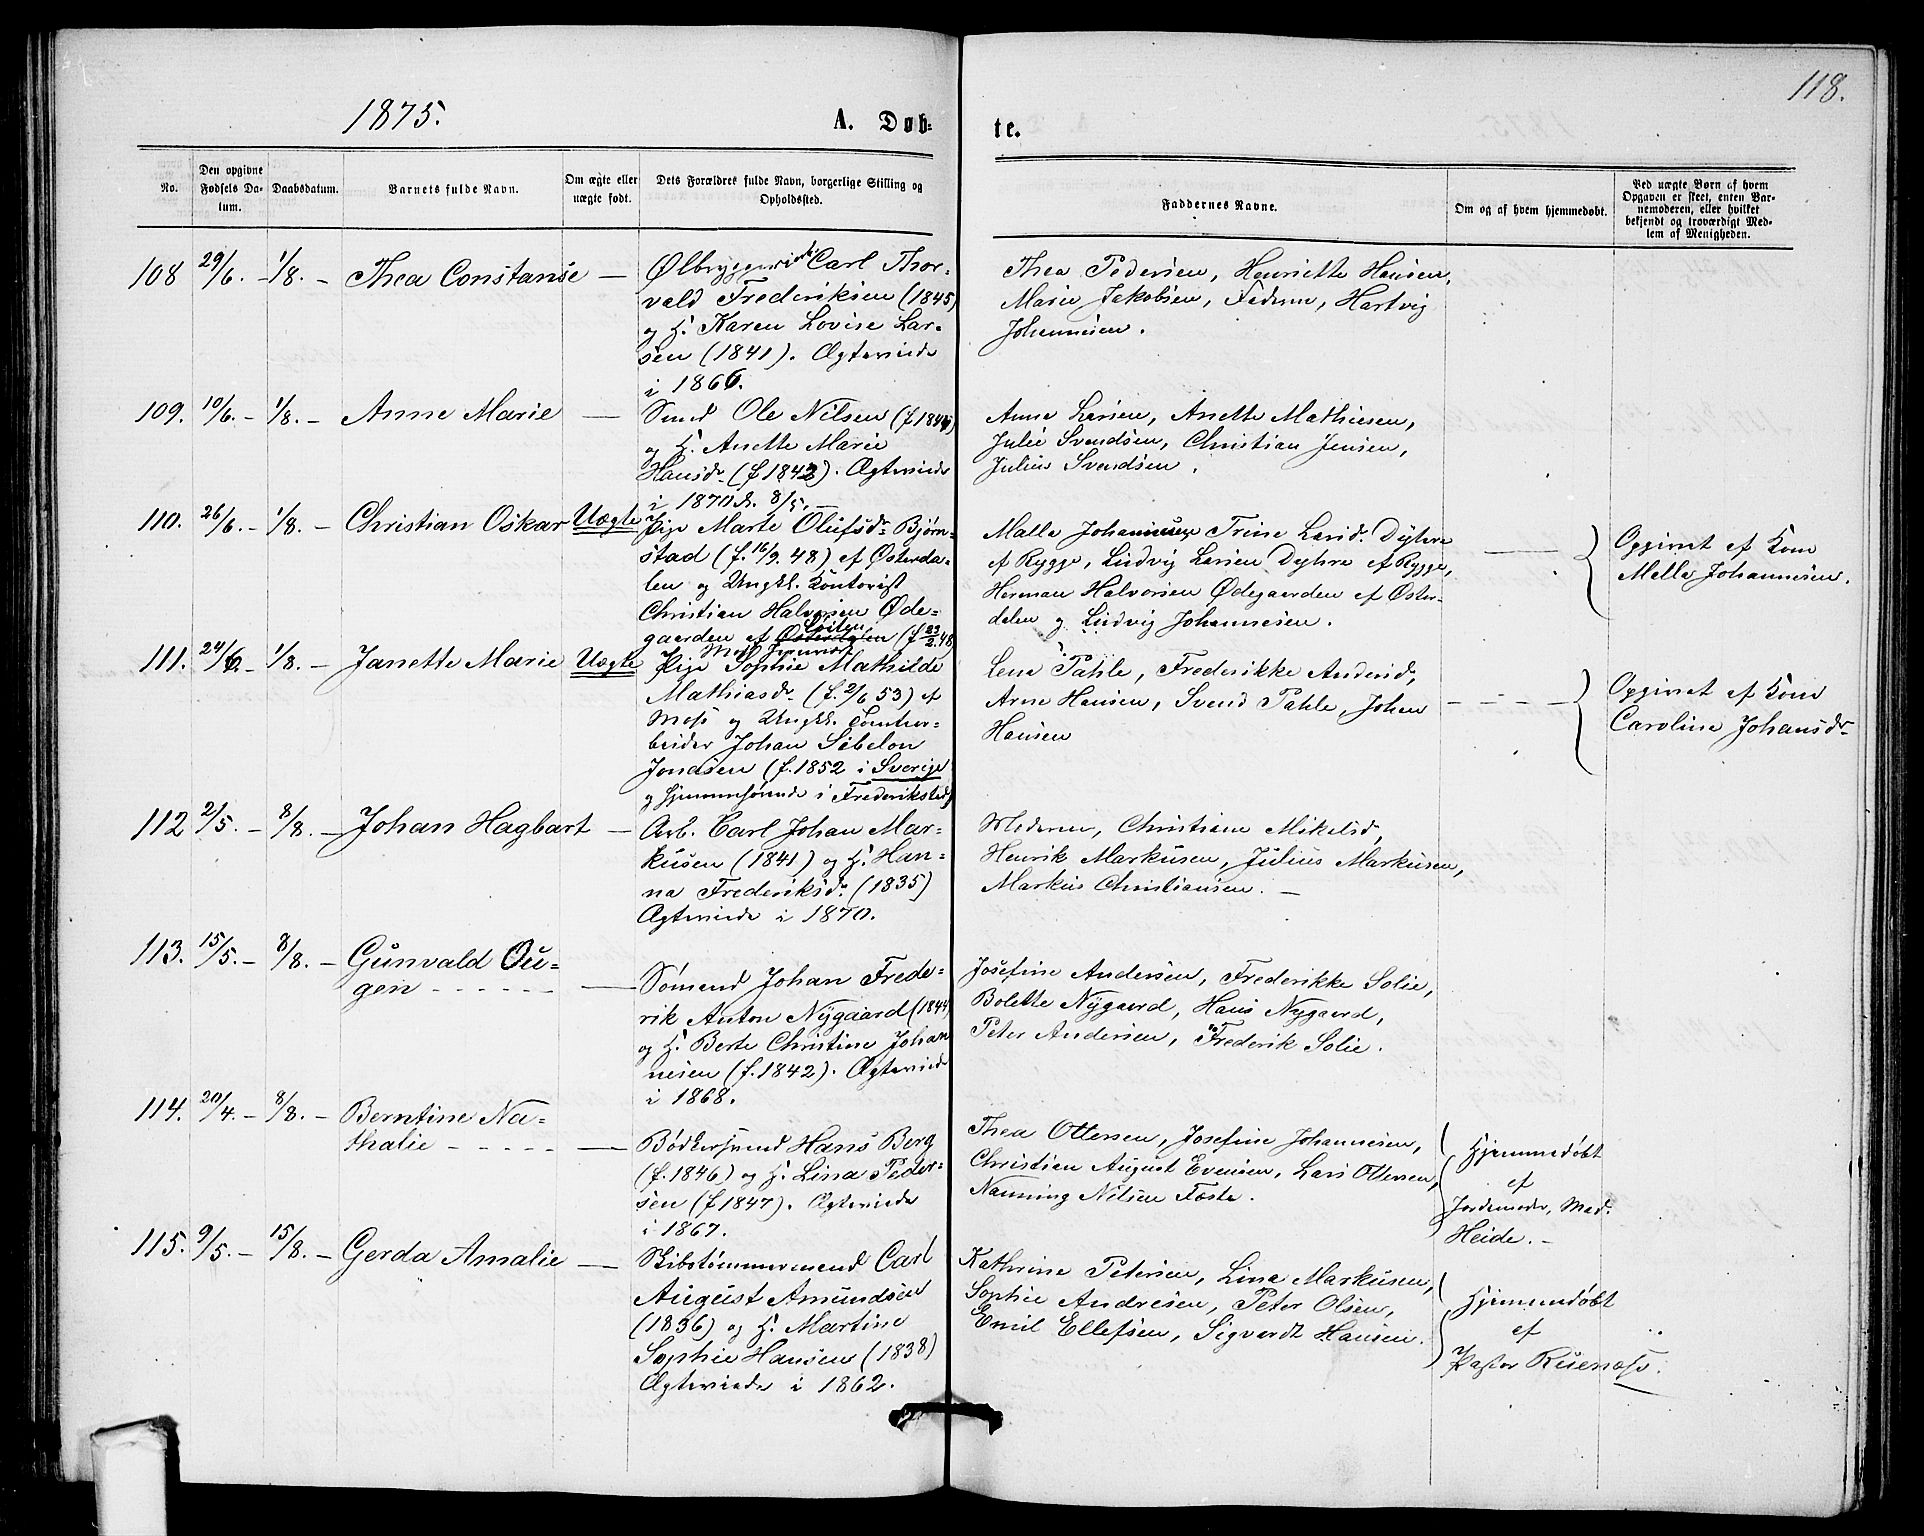 118.
1875.
A. Døb-
te.
No.
Den opgivne
Fødsels Da-
tum.
Daabsdatum.
Barnets fulde Navn.
Om ægte eller
uægte født.
Dets Forældres fulde Navn, borgerlige Stilling og
Opholdssted.
Faddernes Navne.
Om og af hvem hjemmedøbt.
Ved uægte Børn af hvem
Opgaven er skeet, enten Bar-
nemoderen, eller hvilket
bekjendt og troværdigt Med-
lem af Menigheden.
108 29/6. - 1/8. - Thea Constanse —
Ølbryggeri Carl Thor-
vald Frederiksen (1845)
og H. Karen Lovise Lar-
sen (1841). Ægteviede
i 1866.
Thea Pedersen, Henriette Hansen,
Marie Jakobsen, Faderen, Hartvig
Johannesen.
109. 10/6. - 1/8. - Anne Marie —
Smed Ole Nilsen (f 1844)
og H. Anette Marie
Hansdr. (f 1842). Ægteviede
i 1870 d. 8/5. —
Anne Larsen, Anette Mathiesen,
Julie Svendsen, Christian Jensen,
Julius Svendsen.
110. 26/6. - 1/8. - Christian Oskar Uægte
Pige Marte Olufsdr. Bjørn-
stad (f. 16/9. 48) af Østerda-
len og Ungkl. Kontorist
Christian Halvorsen Øde-
gaarden af Østerdalen Løiten (f 23/2 48)
Malla Johannesen Trine Larsd. Dyhre
af Rygge, Ludvig Larsen Dyhre af Rygge,
Herman Halvorsen Ødegaarden af Øster-
dalen og Ludvig Johannesen.
Opgivet af Kone
Malla Johannesen.
111. 24/6 - 1/8. - Janette Marie Uægte
Pige Sophie Mathilde
Mathiasdr. (f. 2/6 53) af
Moss og Ungkl. Tomtear-
beider Johan Sibelon
Jondsen (f. 1852 i Sverige
og hjemmehørende i Frederikstad)
Lena Pahle, Frederikke Andersd,
Arne Hansen, Svend Pahle, Johan
Hansen
Opgivet af Kone
Caroline Johansdr
112 2/5. - 8/8. - Johan Hagbart —
Arb. Carl Johan Mar-
kusen (1841) og H. Han-
na Frederiksd. (1835)
Ægteviede i 1870.
Moderen, Christiane Mikelsd,
Henrik Markusen, Julius Markusen,
Markus Christiansen. —
113. 15/5. - 8/8. - Gunvald Ou-
gen - - - - - —
Sømand Johan Frede-
rik Anton Nygaard (1844)
og H. Berte Christine Johan
nesen (f. 1842). Ægteviede
i 1868.
Josefine Andersen, Frederikke Solie,
Bolette Nygaard, Hans Nygaard,
Peter Andersen, Frederik Solie.
114. 20/4. - 8/8. - Berntine Na-
thalie - - - - - —
Bødkersvend Hans Berg
(f. 1846) og H. Lina Peder-
sen (f 1847). Ægteviede
i 1867.
Thea Ottersen, Josefine Johannesen,
Christian August Evensen, Lars Ottersen,
Nanning Nilsen Foste.
Hjemmedøbt
af
Jordemoder, Mad.
Heide. —
115. 9/5. - 15/8. - Gerda Amalie —
Skibstømmermand Carl
August Amundsen
(1836) og H. Martine
Sophie Hansen (1838)
Ægteviede i 1862.
Kathrine Petersen, Lina Markusen,
Sophie Andresen, Peter Olsen,
Emil Ellefsen, Sigvardt Hansen.
Hjemmedøbt
af
Pastor Ruenæss.